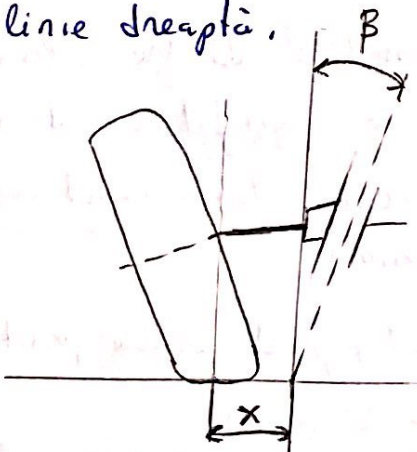 linie dreaptă.
β
x